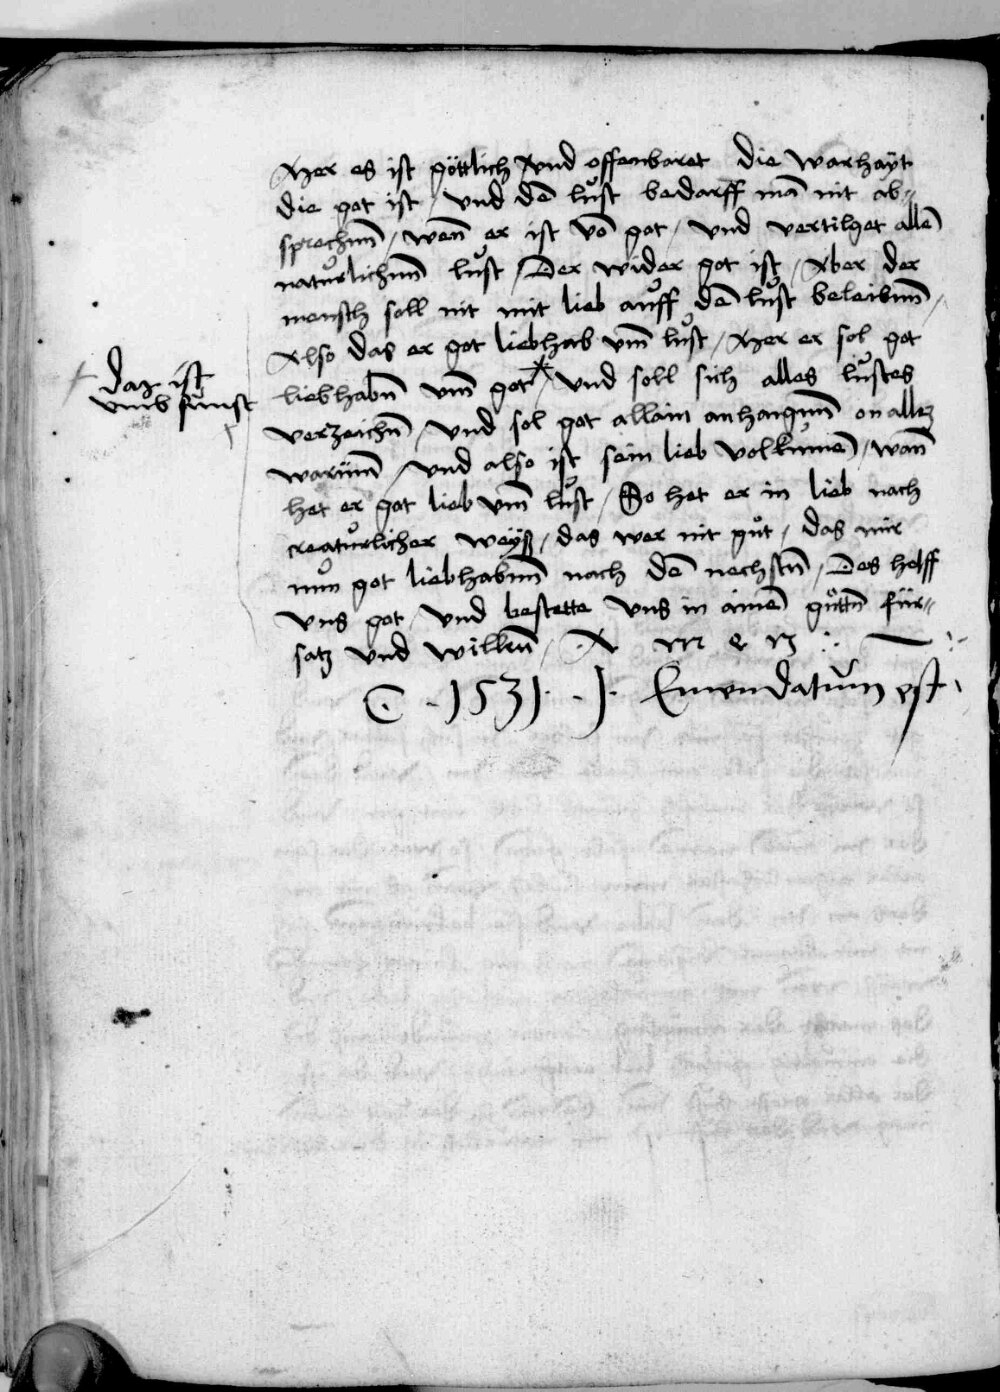 Aber es ist göttlich / vnd offenbaret die warhayt
die got ist / vnd dē lůst bedarff mā nit ab=
sprechnn̄ / wenn̄ er ist vō got / vnd vertilget allē
natůrlichnn̄ lůst / Der wider got ist / Aber der
mensch soll nit mit lieb aůff dē lůst beleibnn̄ /
Also das er got liebhab vm̄ lůst / Aber er sol got
liebhabn̄ vm̄ got / vnd soll sich alles lůstes
daz ist
vmb sůnst
verzeichn̄ / vnd sol got allain anhangnn̄ on allez
warůmm̄ / vnd also ist sein lieb volkůmē / wan̄
het er got lieb vm̄ lůst / So het er in lieb nach
creatůrlicher weyß / das wer nit gůt / das mir
nůn got liebhabnn̄ nach dē nechstn̄ / Des helff
vns got / vnd bestette vns in ainē gůttn̄ für=
satz vnd willenn̄ / A m e n
C · 1531 · J · Emendatům est